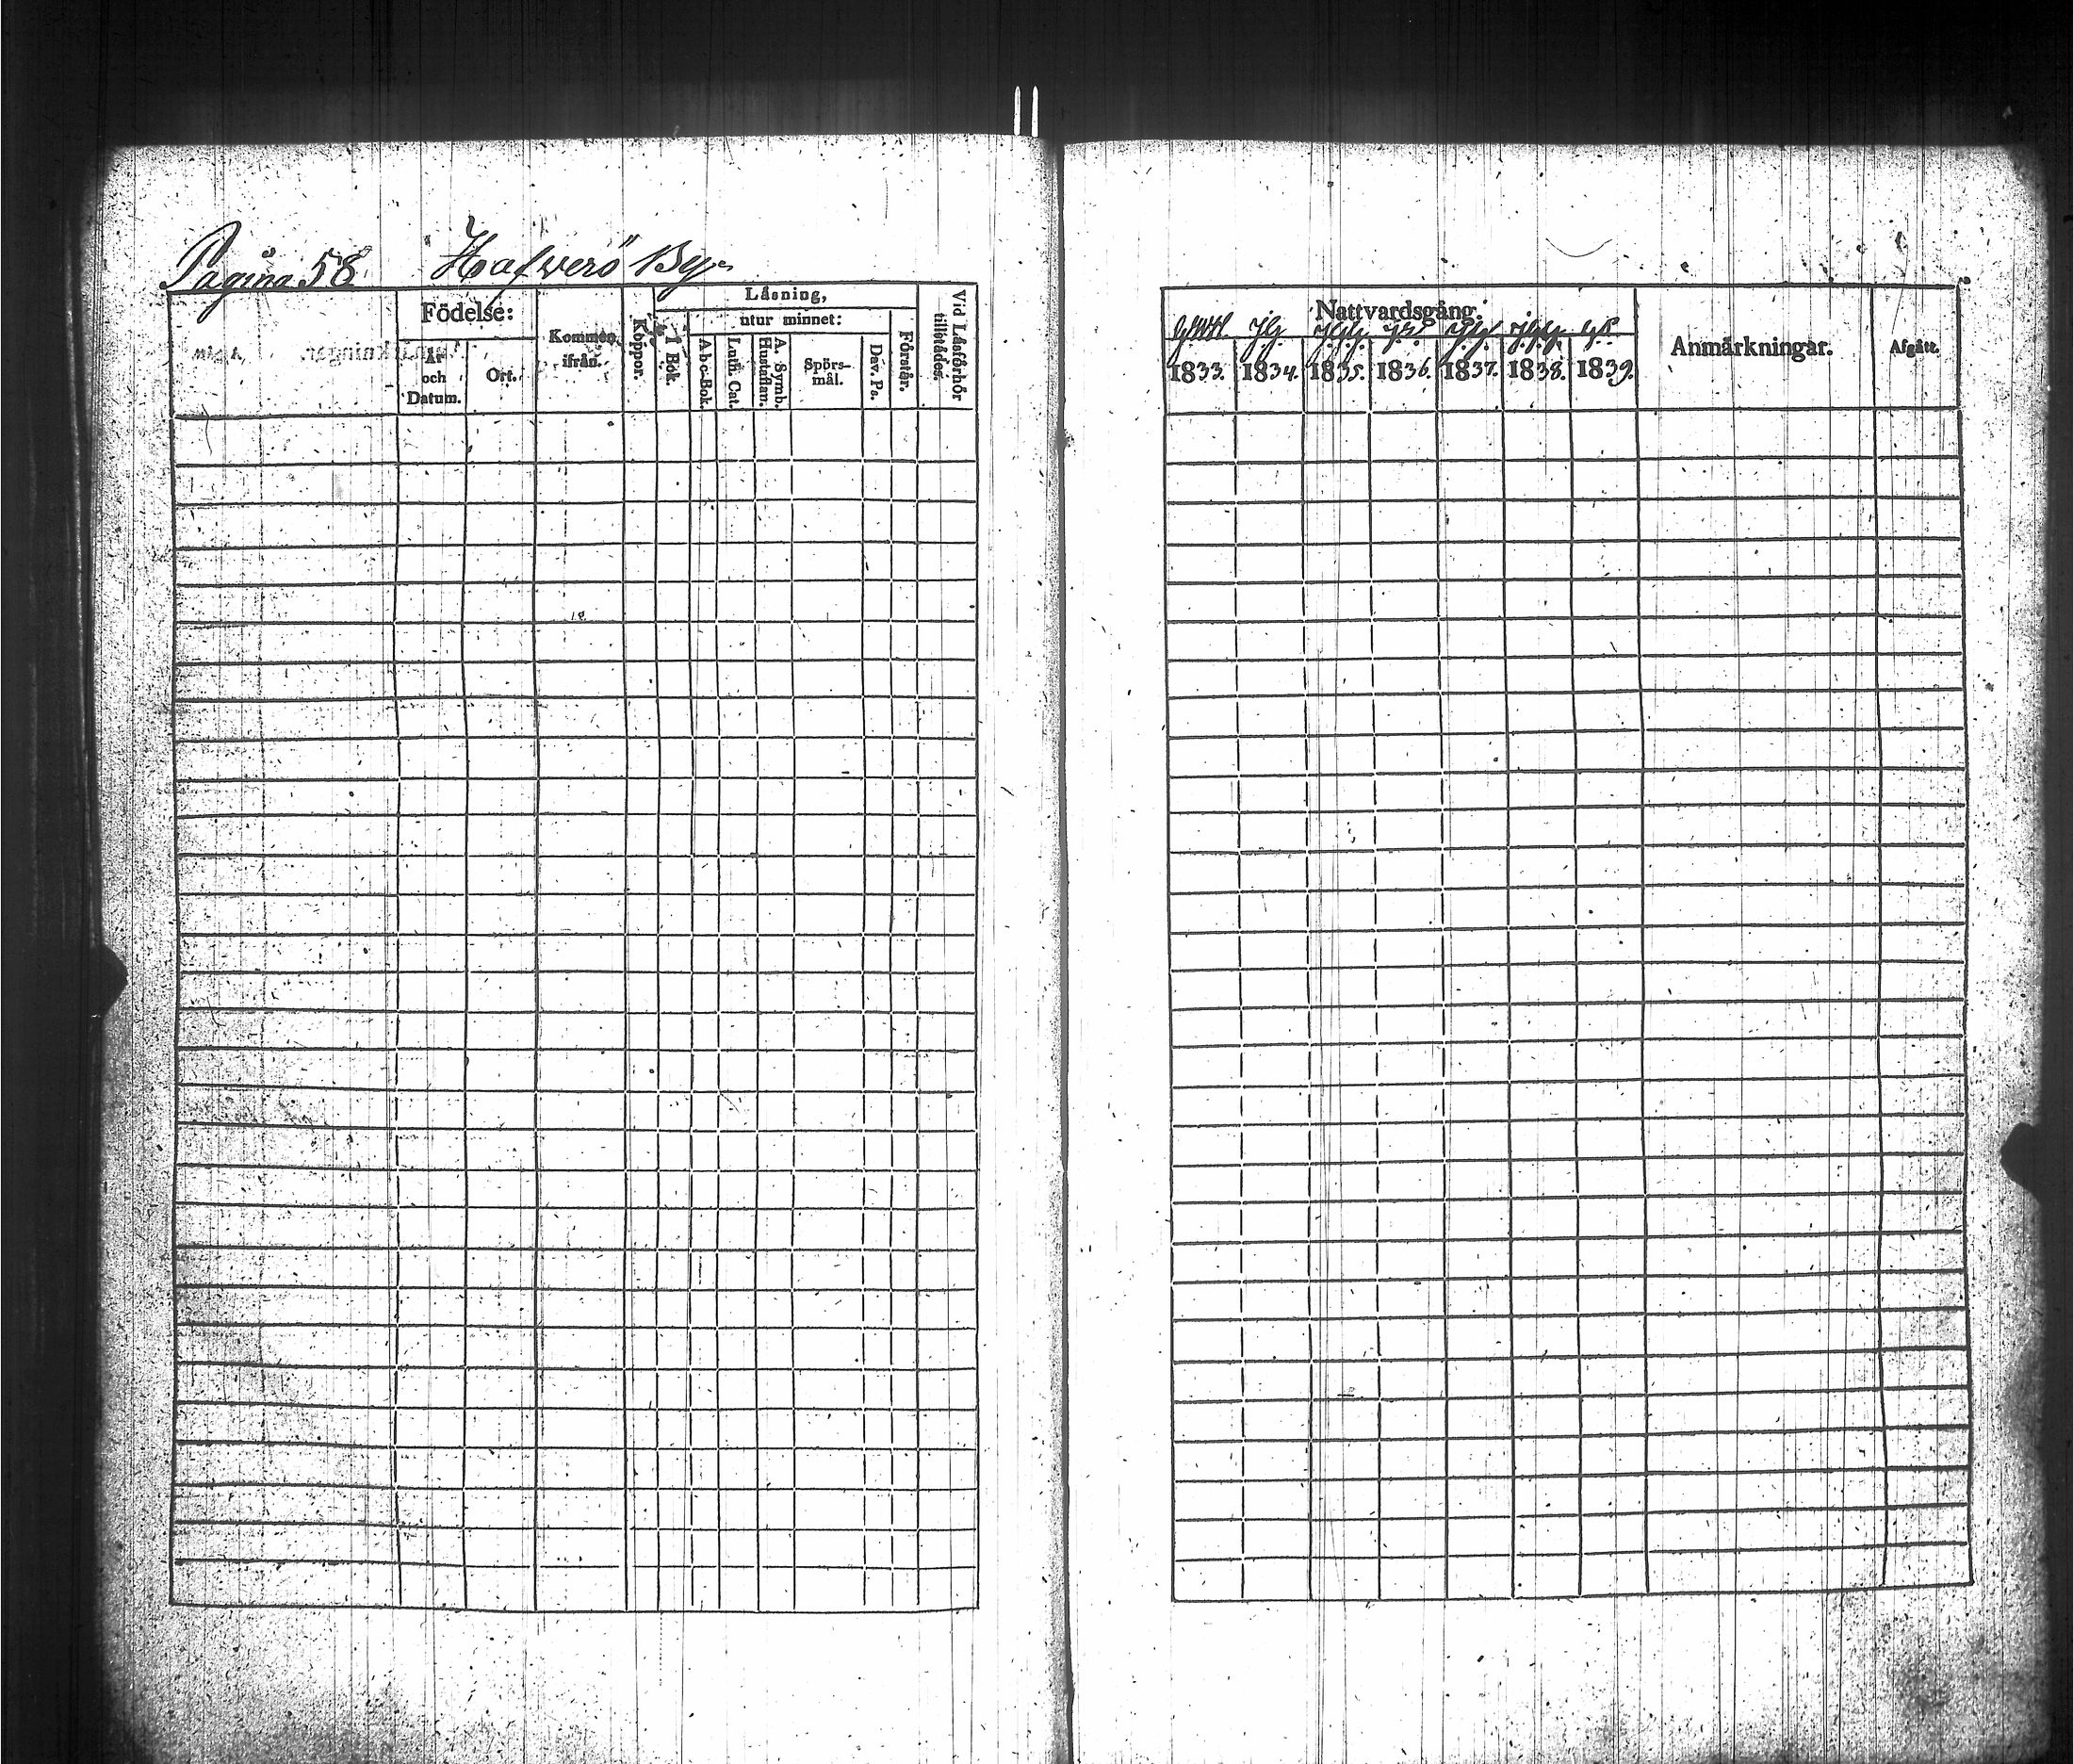 Pagina 58 Hafwerö By
Födelse:
År
och
Datum.
Ort.
Kommen
ifrån.
Koppor.
Läsning,
I Bok.
utur minnet:
A b c-Bok.
Luth. Cat.
A. Symb.
Hustaflan.
Spörs-
mål.
Dav. Ps.
Förstår.
Vid Läsförhör
tillstädes.
Nattvardsgång.
1833. 1834. 1835. 1836. 1837. 1838. 1839.
Anmärkningar.
Afgått.